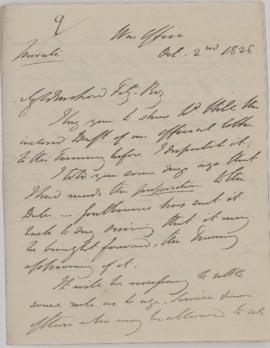 9
Private
War Office
Oct. 2nd 1828
My dear Lord Fitz Roy
I beg you to show Ld Hill the
inclosed Draft of an official letter
to the Treasury before I dispatch it.
I told you some days ago that
I had made the proposition to the
Duke - Goulbourne has sent it
back to day saying that it may
be brought forward, the Treasury
approving of it.
It will be necessary to settle
some rule as to age. Service &c
officers who may be allowed to sell